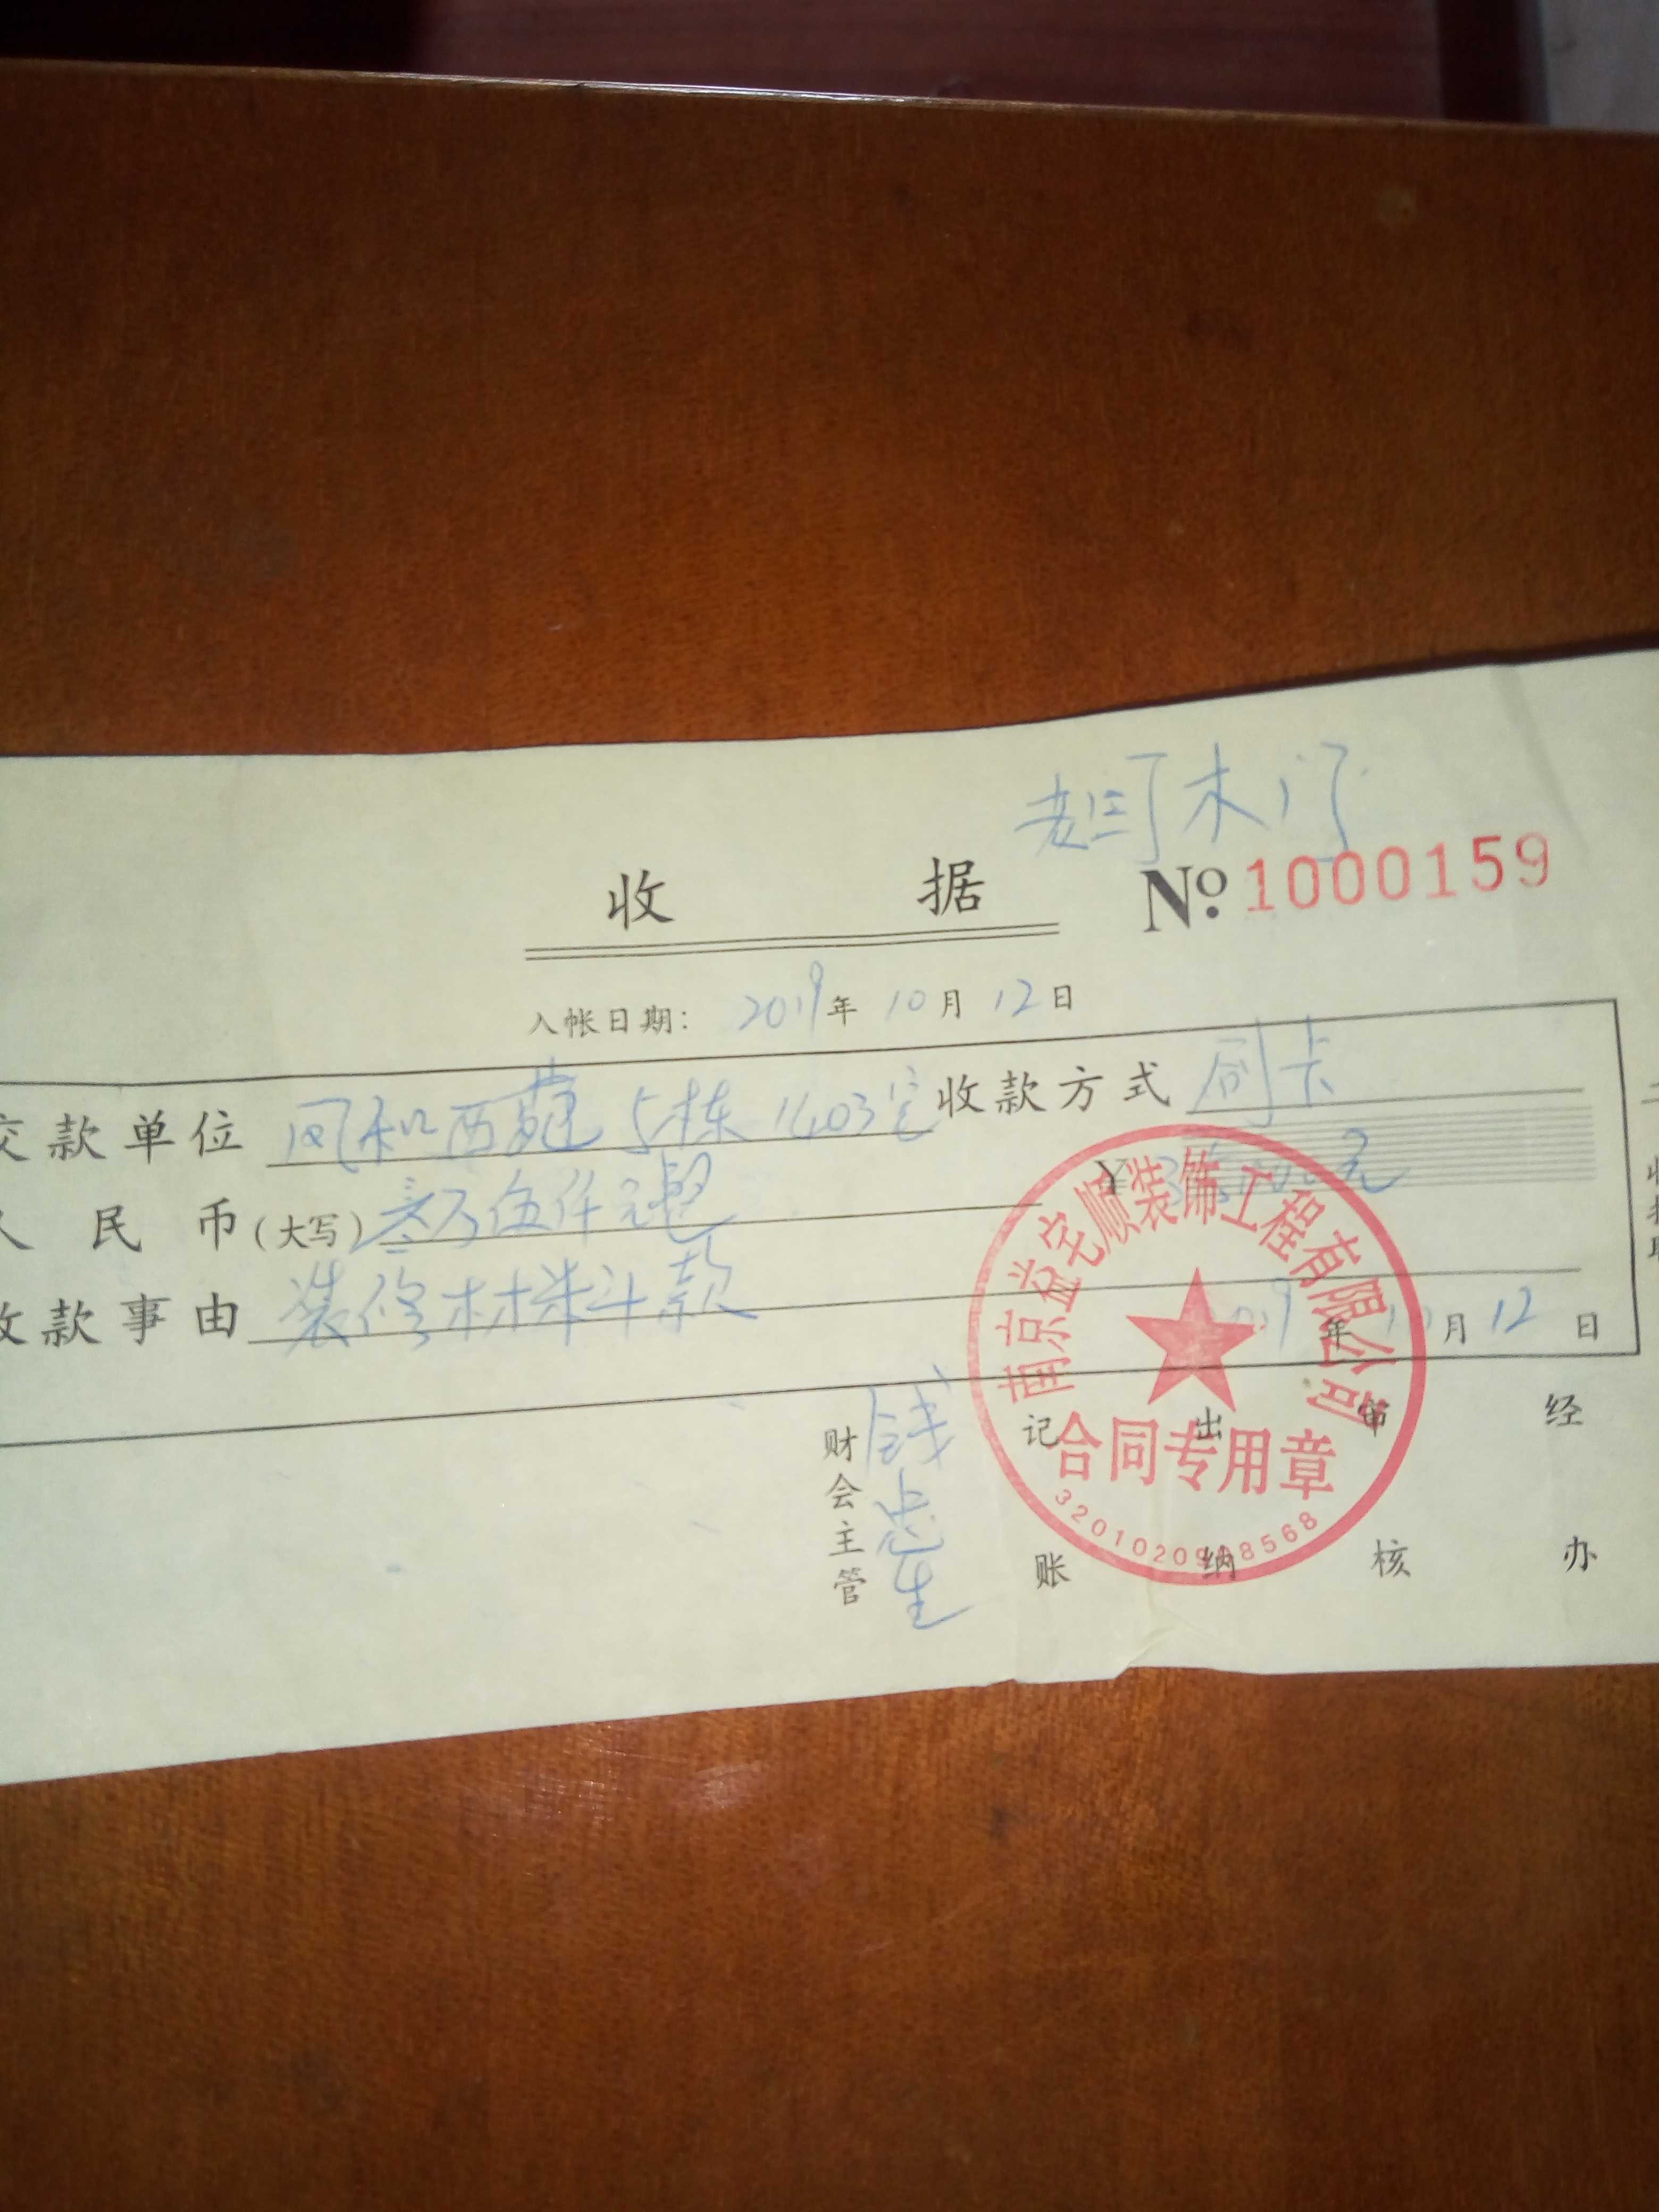 老闫木门
收 据 № 1000159
入帐日期: 2019年 10月 12日
交款单位 凤和西苑 5栋 1403室 收款方式 刷卡
人民币(大写) 叁万伍仟元整 ¥ 元
收款事由 装修材料款
2019年 10月 12日
南京益宅顺装饰工程有限公司
合同专用章
财会主管 钱忠生 记账 出纳 审核 经办